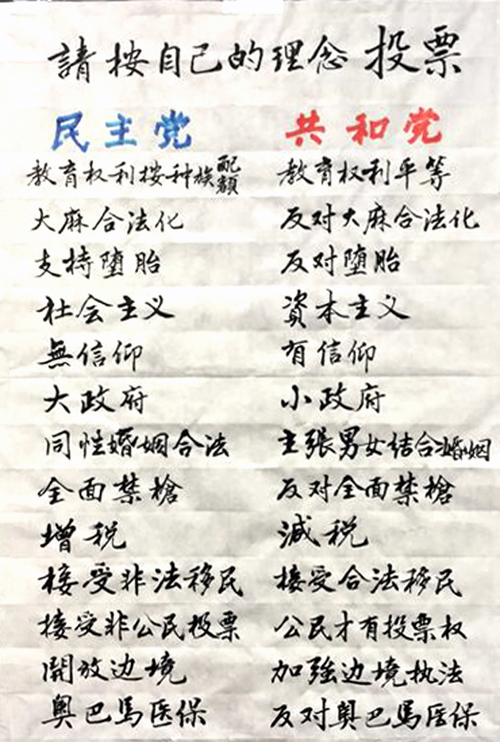 請按自己的理念投票
民主党 共和党
教育权利按种族配额 教育权利平等
大麻合法化 反对大麻合法化
支持堕胎 反对堕胎
社会主义 資本主义
無信仰 有信仰
大政府 小政府
同性婚姻合法 主张男女结合婚姻
全面禁槍 反对全面禁槍
增税 減税
接受非法移民 接受合法移民
接受非公民投票 公民才有投票权
開放边境 加強边境执法
奥巴馬医保 反对奥巴馬医保